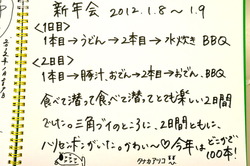 新年会 2012.1.8〜1.9
<1日目>
1本目→うどん→2本目→水炊き BBQ
<2日目>
1本目→豚汁、おでん→2本目→おでん、BBQ
食べて潜って食べて潜ってとても楽しい2日間
でした。三角ブイのところに、2日間ともに、
ハリセンボンがいた。かわい〜♡今年は どこかで
100本!
タナカアリコ